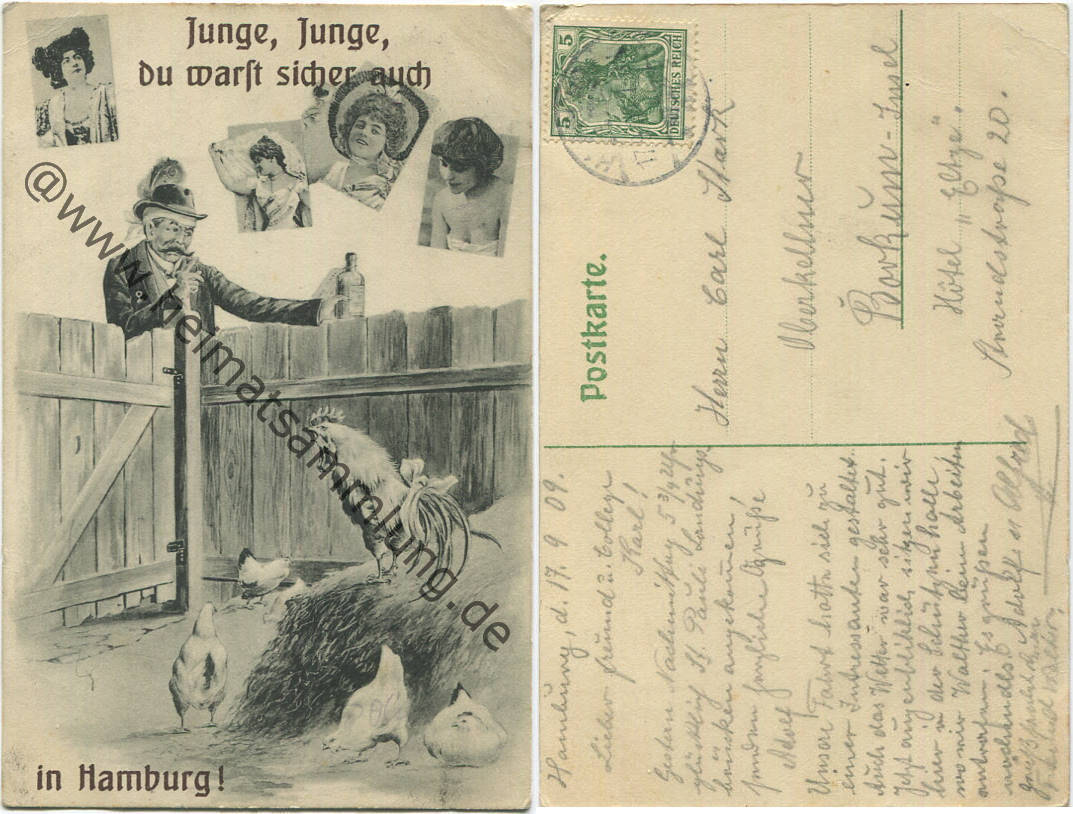 Junge, Junge,
du warst sicher auch
in Hamburg!
@www.heimatsammlung.de
5 5
DEUTSCHES REICH
Postkarte.
Herrn Carl Stark
Oberkellner
Borkum-Insel
Hôtel „Elzje".
Strandstraße 20.
Hamburg, d. 17. 9 09.
Lieber Freund u. College
Karl!
Gestern Nachmittag 5 3/4 Uhr
glücklich St. Pauli Landungs
brücken angekommen!
senden herzliche Grüße
Adolf
Unsere Fahrt hatte sich zu
einer Interessanten gestaltet
auch das Wetter war sehr gut.
Jetzt augenblicklich sitzen wir
hier in der
wo wir Walter beim Arbeiten
antrafen. Es grüßen
nochmals Adolf u Alfred